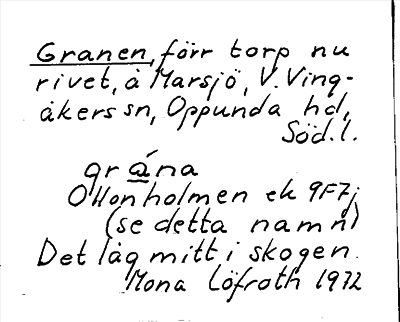 Granen, förr torp nu
rivet, å Marsjö, V. Ving-
åkers sn, Oppunda hd,
Söd. l.
grána
Ottonholmen ek 9F7j
(se detta namn)
Det låg mitt i skogen.
Mona Löfroth 1972